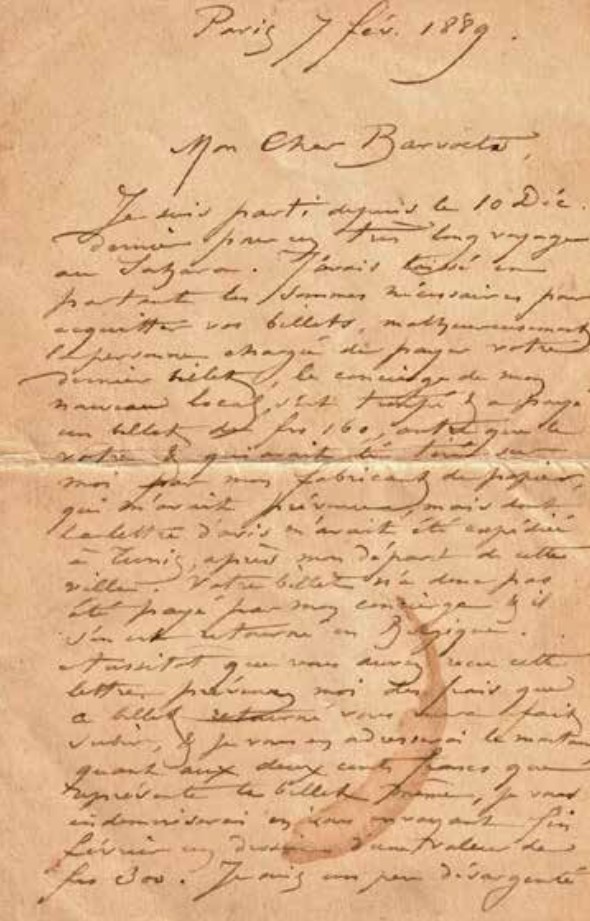 Paris 7 fév. 1889.
Mon Cher Barvoets,
Je suis parti depuis le 10 Déc.
dernier pour un très long voyage
au Sahara. J'avais laissé en
partant les sommes nécessaires pour
acquitter vos billets, malheureusement
la personne chargée de payer votre
dernier billet, le concierge de mon
nouveau local, s'est trompé & a payé
un billet de frs 160, autre que le
votre & qui avait été tiré sur
moi par mon fabricant de papier,
qui m'avait prévenu, mais dont
la lettre d'avis m'avait été expédiée
à Tunis, après mon départ de cette
ville. Votre billet n'a donc pas
été payé par mon concierge & il
s'en est retourné en Belgique.
Aussitot que vous aurez reçu cette
lettre, prévenez moi des frais que
ce billet retourné vous aura fait
subir, & je vous en adresserai le montant
quant aux deux cents francs que
représente le billet même, je vous
indemniserai en vous envoyant fin
février un dessin d'une valeur de
frs 300. Je suis un peu désargenté